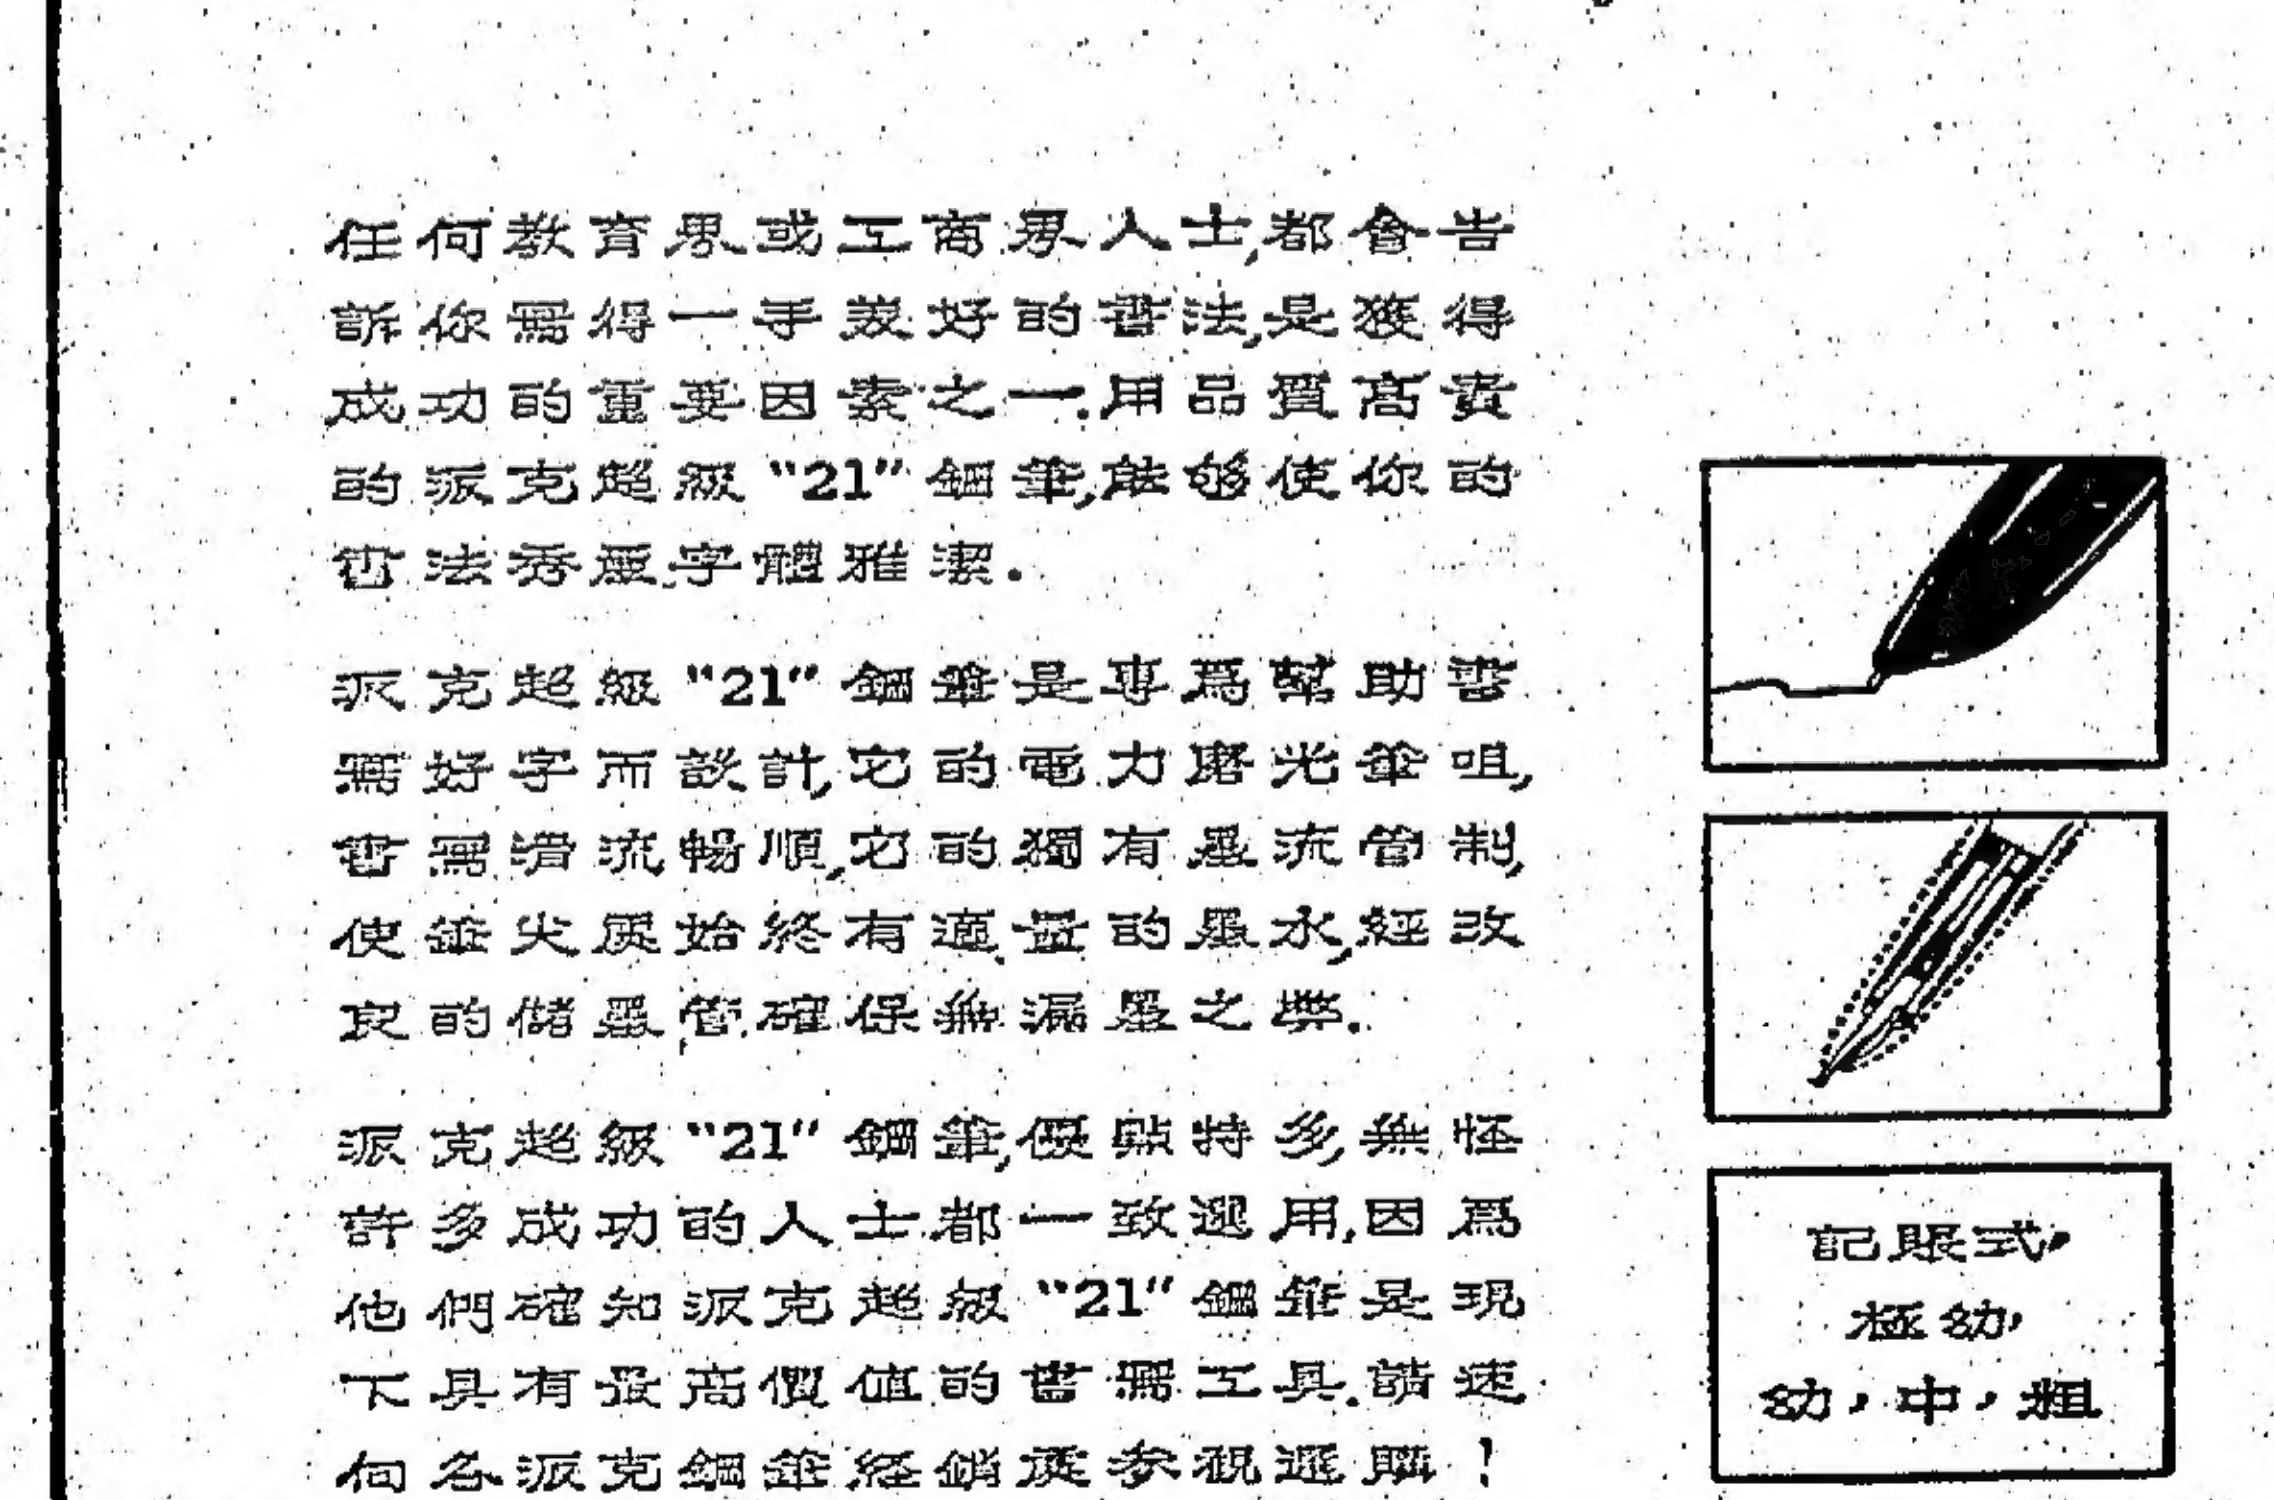 任何教育界或工商界人士,都會告
訴你寫得一手美好的書法,是獲得
成功的重要因素之一.用品質高貴
的派克超級“21”鋼筆,能够使你的
書法秀麗,字體雅潔.
派克超級“21”鋼筆是專爲幫助書
寫好字而設計,它的電力磨光筆咀,
書寫滑流暢順,它的獨有墨流管制,
使筆尖處始終有適量的墨水,經改
良的儲墨管,確保無漏墨之弊.
派克超級“21”鋼筆,優點特多,無怪
許多成功的人士都一致選用,因爲
他們確知派克超級“21”鋼筆是現
下具有最高價值的書寫工具.請速
向各派克鋼筆經銷處參觀選購!
記賬式,
極幼,
幼,中,粗